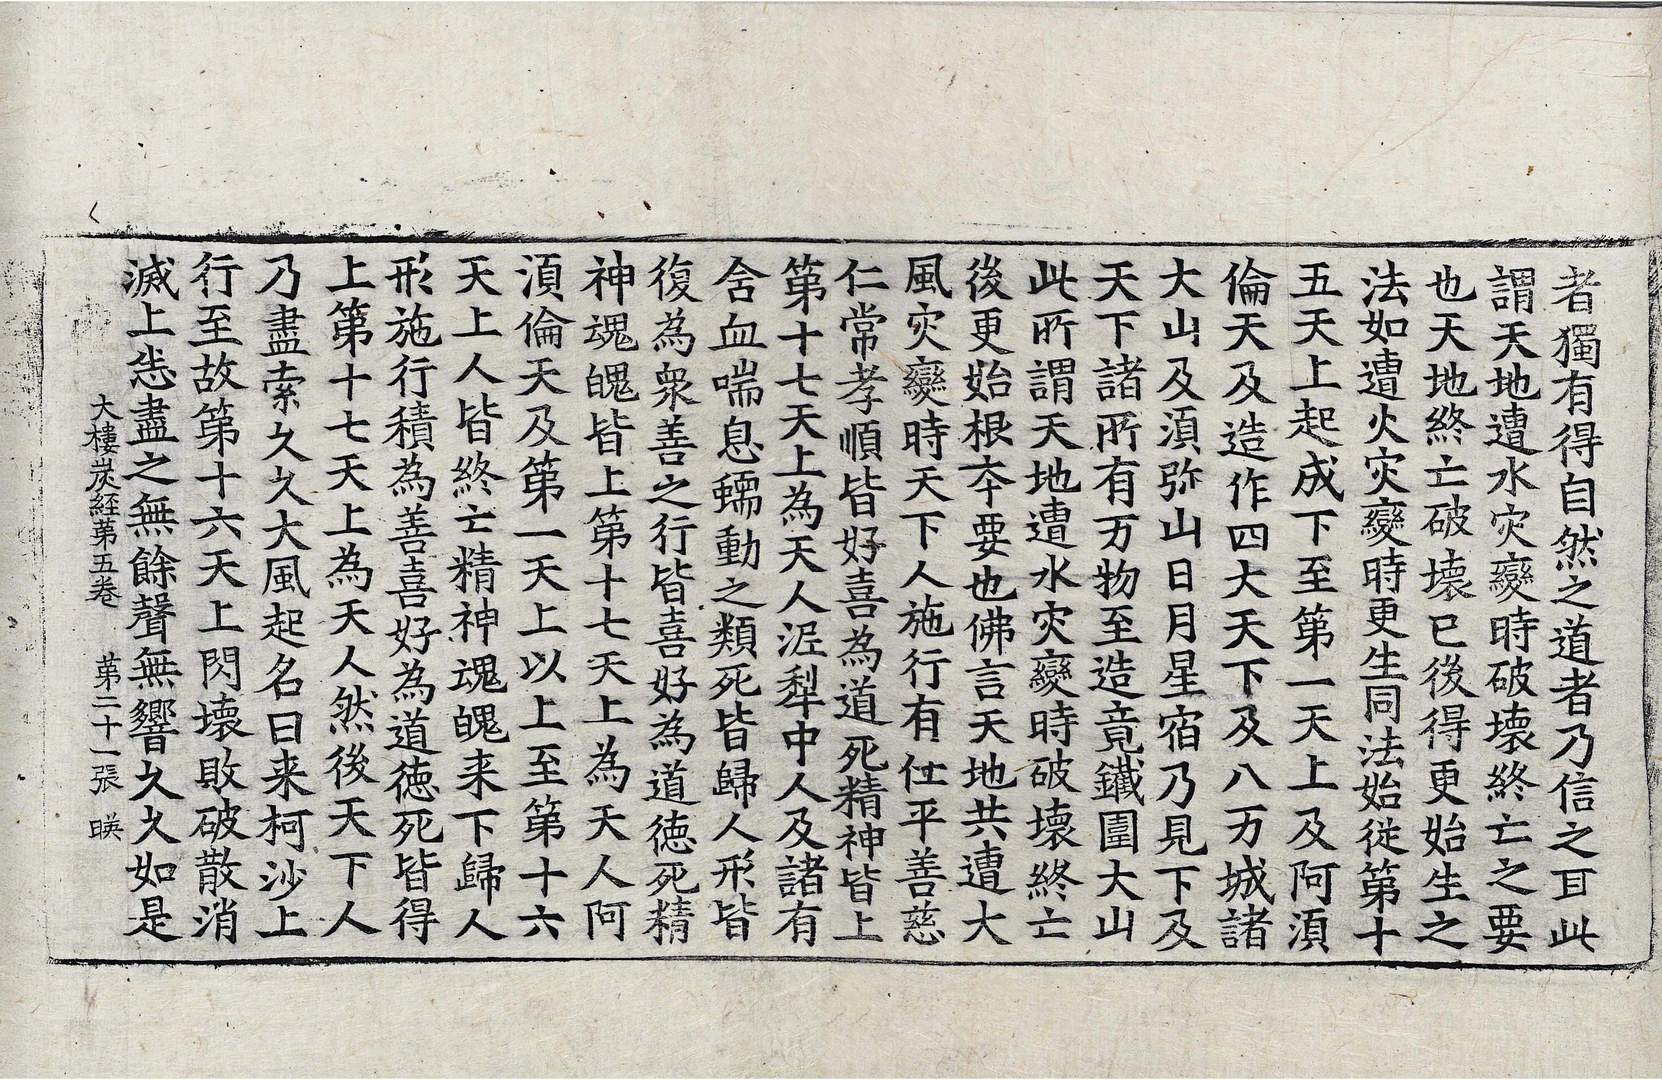 者獨有得自然之道者乃信之耳此
謂天地遭水灾變時破壞終亡之要
也天地終亡破壞已後得更始生之
法如遭火灾變時更生同法始從第十
五天上起成下至第一天上及阿湏
倫天及造作四大天下及八万城諸
大山及湏弥山日月星宿乃見下及
天下諸所有万物至造竟鐵圍大山
此所謂天地遭水灾變時破壞終亡
後更始根夲要也佛言天地共遭大
風灾變時天下人施行有仕平善慈
仁常孝順皆好喜為道死精神皆上
第十七天上為天人泥犁中人及諸有
含血喘息蠕動之類死皆歸人形皆
復為衆善之行皆喜好為道德死精
神魂魄皆上第十七天上為天人阿
湏倫天及第一天上以上至第十六
天上人皆終亡精神魂魄来下歸人
形施行積為善喜好為道德死皆得
上第十七天上為天人然後天下人
乃盡索久久大風起名曰来柯沙上
行至故第十六天上閃壞敗破散消
滅上悉盡之無餘聲無響久久如是
大樓炭經苐五卷 苐二十一張 暎